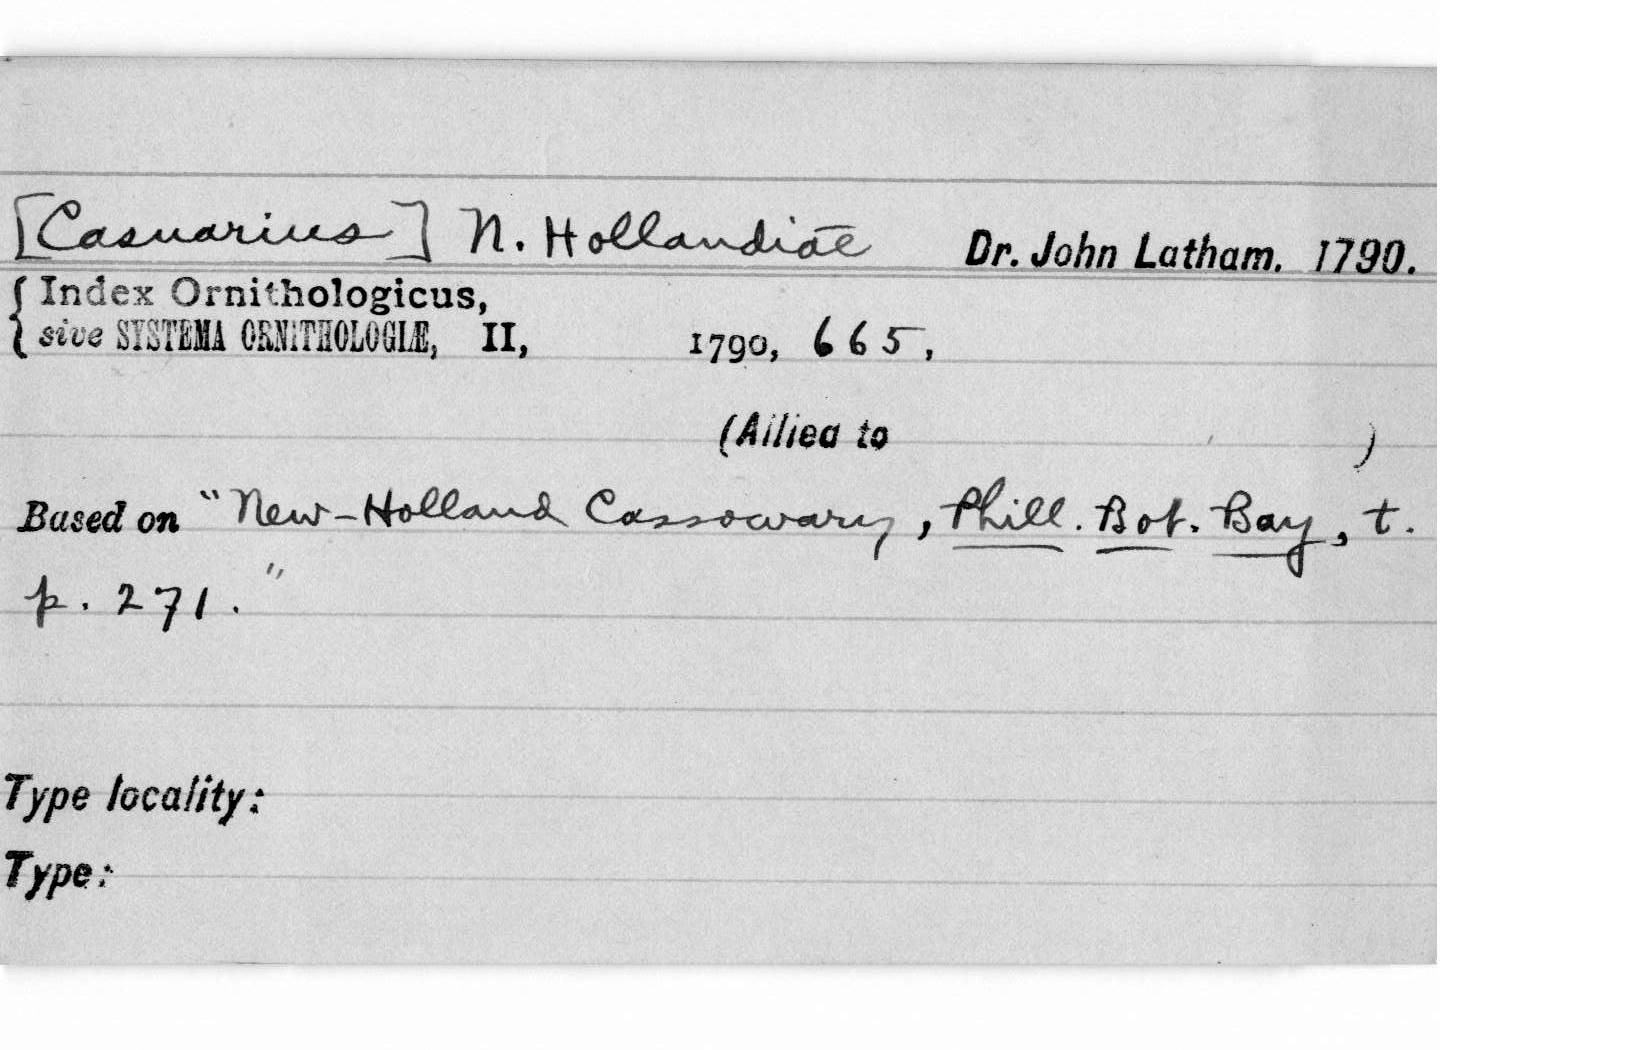 [Casuarius] N. Hollandiae Dr. John Latham. 1790.
Index Ornithologicus,
sive SYSTEMA ORNITHOLOGIÆ, II, 1790, 665,
(Allied to )
Based on "New-Holland Cassowary, Phill. Bot. Bay, t.
p. 271."
Type locality:
Type: